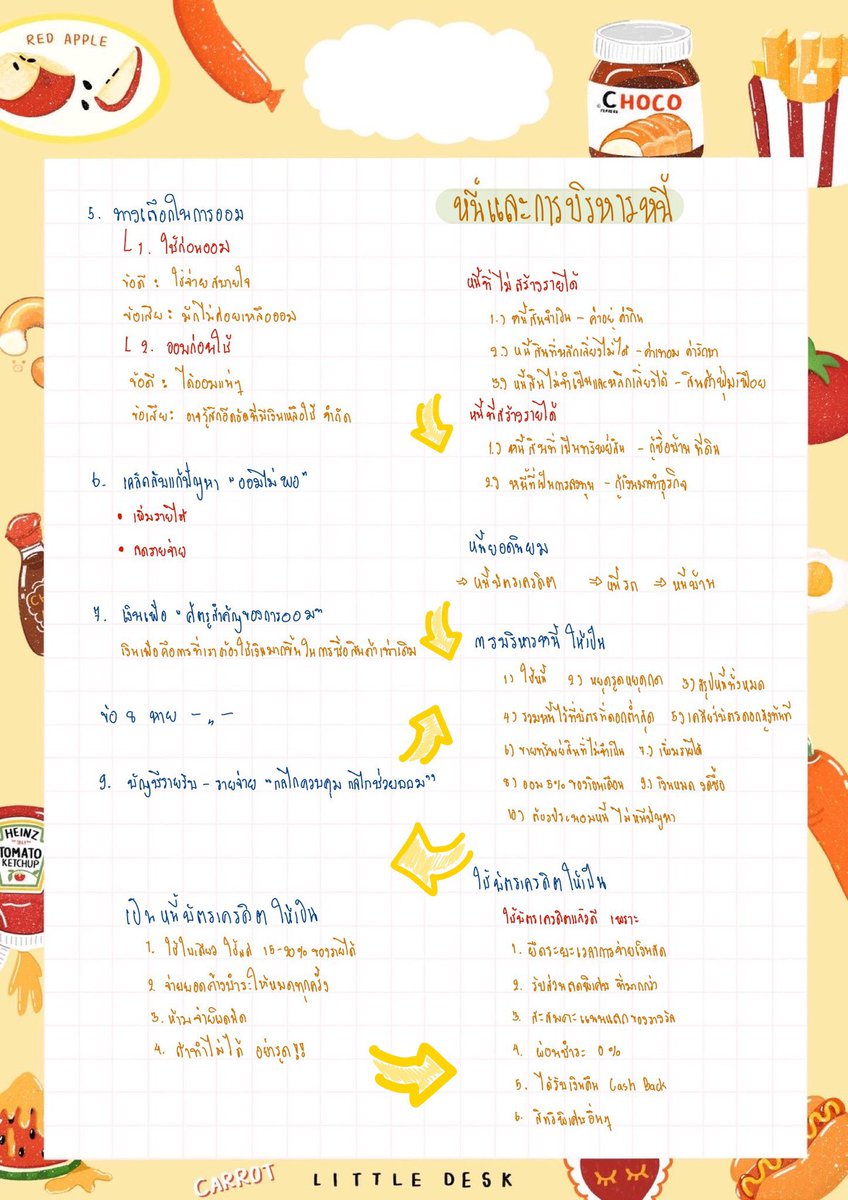 RED APPLE
CHOCO
5. ทางเลือกในการออม
1. ใช้ก่อนออม
ข้อดี : ใช้จ่ายสบายใจ
ข้อเสีย : มักไม่ค่อยเหลือออม
2. ออมก่อนใช้
ข้อดี : ได้ออมแน่ๆ
ข้อเสีย : อาจรู้สึกอึดอัดที่มีเงินเหลือใช้ จำกัด
6. เคล็ดลับแก้ปัญหา "ออมไม่พอ"
• เพิ่มรายได้
• ลดรายจ่าย
7. เงินเฟ้อ "ศัตรูสำคัญของการออม"
เงินเฟ้อคือการที่เราต้องใช้เงินมากขึ้นในการซื้อสินค้าเท่าเดิม
ข้อ 8 หาย -„-
9. บัญชีรายรับ - รายจ่าย "กลไกควบคุม กลไกช่วยออม"
เป็นหนี้บัตรเครดิต ให้เป็น
1. ใช้ใบเดียว ใช้แค่ 15-20% ของรายได้
2. จ่ายยอดค้างชำระให้หมดทุกครั้ง
3. ห้ามจ่ายผิดนัด
4. ถ้าทำไม่ได้ อย่ารูด !!
หนี้และการบริหารหนี้
หนี้ที่ไม่สร้างรายได้
1.) หนี้สินจำเป็น - ค่าอยู่ ค่ากิน
2.) หนี้สินที่หลีกเลี่ยงไม่ได้ - ค่าเทอม ค่ารักษา
3.) หนี้สินไม่จำเป็นและหลีกเลี่ยงได้ - สินค้าฟุ่มเฟือย
หนี้ที่สร้างรายได้
1.) หนี้สินที่เป็นทรัพย์สิน - กู้ซื้อบ้าน ที่ดิน
2.) หนี้ที่เป็นการลงทุน - กู้เงินมาทำธุรกิจ
หนี้ยอดนิยม
⇒ หนี้บัตรเครดิต ⇒ หนี้รถ ⇒ หนี้บ้าน
การบริหารหนี้ ให้เป็น
1) ใช้หนี้ 2) หยุดรูดหยุดกด 3) สรุปหนี้ทั้งหมด
4) รวมหนี้ไว้ที่บัตรที่ดอกต่ำสุด 5) เคลียร์บัตรดอกสูงทันที
6) ขายทรัพย์สินที่ไม่จำเป็น 7.) เพิ่มรายได้
8) ออม 5% ของเงินเดือน 9.) เงินหมด งดซื้อ
10) ต้องประนอมหนี้ ไม่หนีปัญหา
ใช้บัตรเครดิตให้เป็น
ใช้บัตรเครดิตแล้วดี เพราะ
1. ยืดระยะเวลาการจ่ายเงินสด
2. รับส่วนลดพิเศษ ที่มากกว่า
3. สะสมคะแนนแลกของรางวัล
4. ผ่อนชำระ 0%
5. ได้รับเงินคืน Cash Back
6. สิทธิพิเศษอื่นๆ
HEINZ
TOMATO
KETCHUP
CARROT
LITTLE DESK